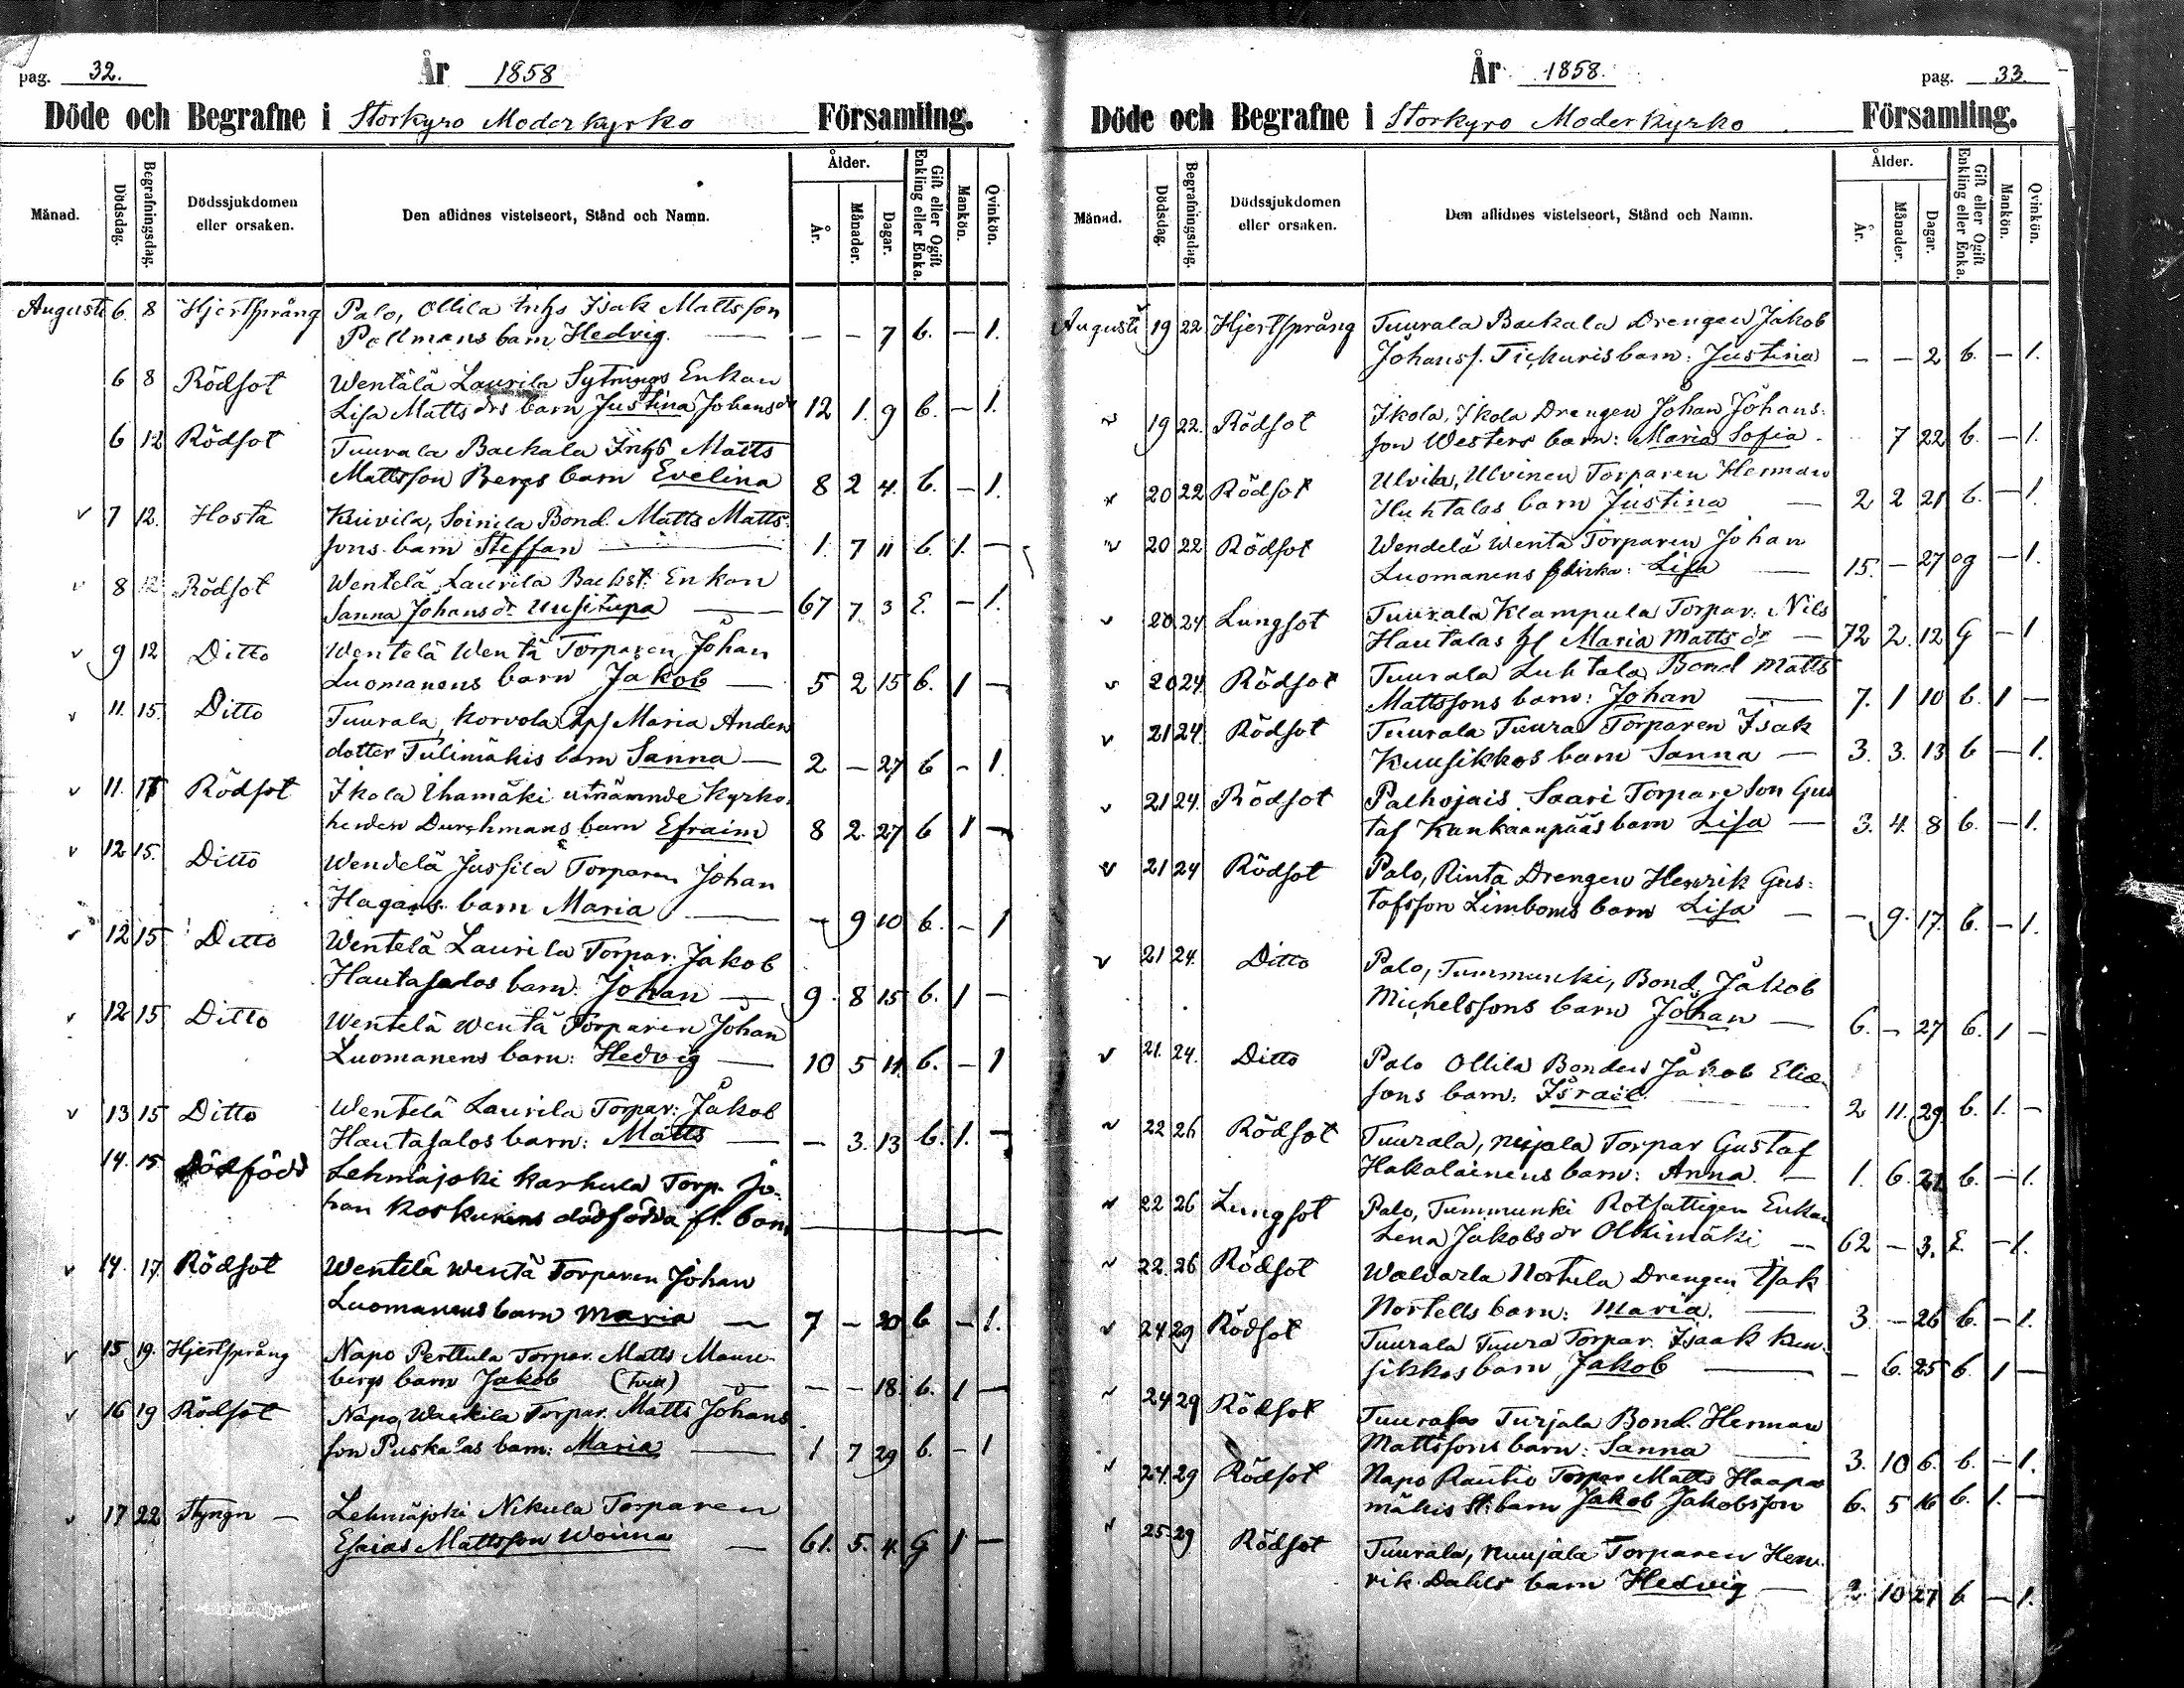 pag. 32. År 1858
Döde och Begrafne i Storkyro Moderkyrko Församling.
Månad. Dödsdag. Begrafningsdag. Dödssjukdomen eller orsaken. Den aflidnes vistelseort, Stånd och Namn. Ålder. År. Månader. Dagar. Gift eller Ogift Enkling eller Enka. Mankön. Qvinkön.
Augusti 6. 8 Hjertsprång Palo, Ollila Inhs Isak Mattsson
Pollmans barn Hedvig — — — 7 b. — 1.
6 8 Rödsot Wentälä Laurila Sytnings Enkan
Lisa Matts drs barn Justina Johans dr 12 1. 9 b. — 1.
6 12 Rödsot Tuurala Backala Inhs Matts
Mattsson Bergs barn Evelina 8 2 4. b. — 1.
v 7 12. Hosta Kuivila, Soinila Bond. Matts Matts
sons barn Steffan — 1. 7 11 b. 1. —
v 8 12 Rödsot Wentelä Laurila Backst. Enkan
Sanna Johans dr Uusitupa — 67 7 3 E. — 1.
v 9 12 Ditto Wentelä Wentä Torparen Johan
Luomanens barn Jakob — 5 2 15 b. 1 —
v 11. 15. Ditto Tuurala, Korvola Maria Anders
dotter Tulimäkis barn Sanna — 2 — 27 b — 1.
v 11. Rödsot Ikola Ihamäki utnämnde Kyrko
herden Durchmans barn Efraim 8 2. 27 b 1 —
v 12 15. Ditto Wendelä Jussila Torparen Johan
Hagars barn Maria — — 9 10 b. — 1
v 12 15 Ditto Wentelä Laurila Torpar. Jakob
Hautasalos barn: Johan — 9. 8 15 b. 1 —
v 12 15 Ditto Wentelä Wentä Torparen Johan
Luomanens barn: Hedvig — 10 5 11. b. — 1
v 13 15 Ditto Wentelä Laurila Torpar: Jakob
Hautasalos barn: Matts — — 3. 13 b. 1. —
14. 15 Dödfödd Lehmäjoki Karhula Torp. Jo-
han Koskinens dödfödda fl. barn —
v 14. 17 Rödsot Wentelä Wentä Torparen Johan
Luomanens barn Maria — 7 — 20 b — 1.
v 15 19. Hjertsprång Napo Perttula Torpar. Matts Maun-
bergs barn Jakob (tvill) — — — 18. b. 1 —
v 16 19 Rödsot Napo, Waskila Torpar. Matts Johans
son Puskalas barn: Maria — 1 7 29 b. — 1
v 17 22 Styngn — Lehmäjoki Nikula Torparen
Esaias Mattsson Woima — 61. 5. 4. G 1 —
År 1858. pag. 33
Döde och Begrafne i Storkyro Moderkyrko Församling.
Månad. Dödsdag. Begrafningsdag. Dödssjukdomen eller orsaken. Den aflidnes vistelseort, Stånd och Namn. Ålder. År. Månader. Dagar. Gift eller Ogift Enkling eller Enka. Mankön. Qvinkön.
Augusti 19 22 Hjertsprång Tuurala Backala Drengen Jakob
Johanss. Tickuris barn: Justina — — 2 b. — 1.
v 19 22. Rödsot Ikola, Ikola Drengen Johan Johans:
son Westers barn: Maria Sofia. 7 22 b. — 1.
v 20 22 Rödsot Ulvila, Ulvinen Torparen Herman
Huhtalas barn Justina — 2 2 21 b. — 1.
v 20 22 Rödsot Wendelä Wentä Torparen Johan
Luomanens flicka: Lisa — 15. — 27 og — 1.
v 20 24 Lungsot Tuurala Klampula Torpar. Nils
Hautalas h Maria Matts dr — 72 2. 12 G — 1
v 20 24 Rödsot Tuurala Luhtala Bond Matts
Mattssons barn: Johan — 7. 1 10 b. 1 —
v 21 24. Rödsot Tuurala Tuura Torparen Isak
Kuusikkos barn Sanna — 3. 3. 13 b — 1.
v 21 24. Rödsot Palhojais Saari Torpare Son Gus
taf Kankaanpääs barn Lisa — 3. 4. 8 b. — 1.
v 21 24 Rödsot Palo, Rinta Drengen Henrik Gus:
tafsson Limboms barn Lisa — — 9. 17. b. — 1.
v 21 24. Ditto Palo, Tummunki, Bond. Jakob
Michelssons barn Johan — 6. — 27 b. 1 —
v 21. 24. Ditto Palo Ollila Bonden Jakob Elia-
sons barn: Israel. 2 11. 29. b. 1. —
v 22 26 Rödsot Tuurala, Torpar Gustaf
Hakalainens barn: Anna. — 1. 6. 21. b. — 1.
v 22 26 Lungsot Palo, Tummunki Rotfattigen Enkan
Lena Jakobs dr Ollimäki — 62 — 3. E. — 1.
v 22. 26 Rödsot Waldarla Nortula Drengen Isak
Nortells barn: Maria. — 3. — 26 b. — 1.
v 24 29 Rödsot Tuurala Tuura Torpar. Isaak Kuu-
sikkos barn Jakob — — 6. 25 b. 1 —
v 24 29 Rödsot Tuurala Turjala Bond. Herman
Mattssons barn: Sanna — 3. 10 6. b. — 1.
v 24. 29 Rödsot Napo Rautio Torpar Matts Haapa
mäkis St: barn Jakob Jakobsson 6. 5 16 b. 1. —
v 25 29 Rödsot Tuurala, Nuujala Torparen Hen-
rik Dahls barn Hedvig — 2. 10 27 b — 1.